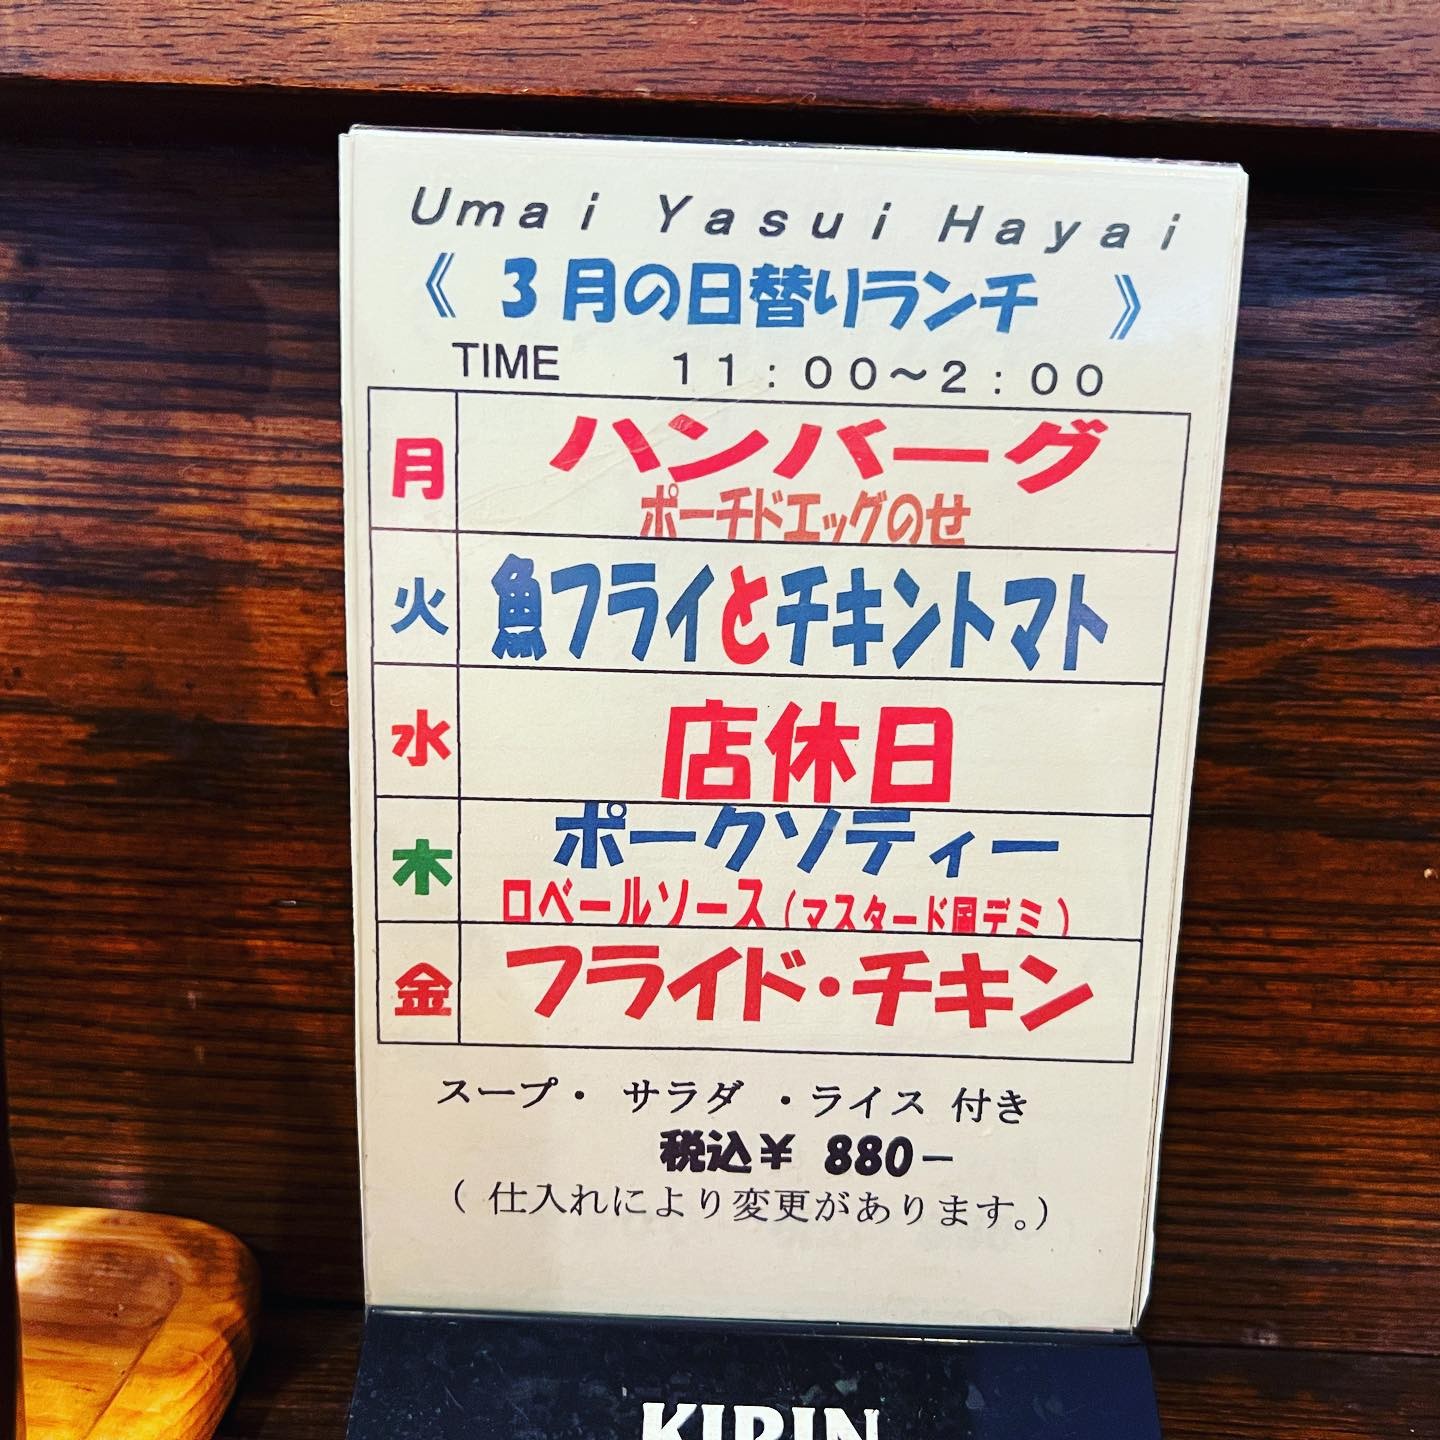 Umai Yasui Hayai
《 3月の日替りランチ 》
TIME 11:00〜2:00
月 ハンバーグ
ポーチドエッグのせ
火 魚フライとチキントマト
水 店休日
木 ポークソティー
ロベールソース(マスタード風デミ)
金 フライド・チキン
スープ・ サラダ ・ライス 付き
税込¥ 880−
( 仕入れにより変更があります。)
KIRIN